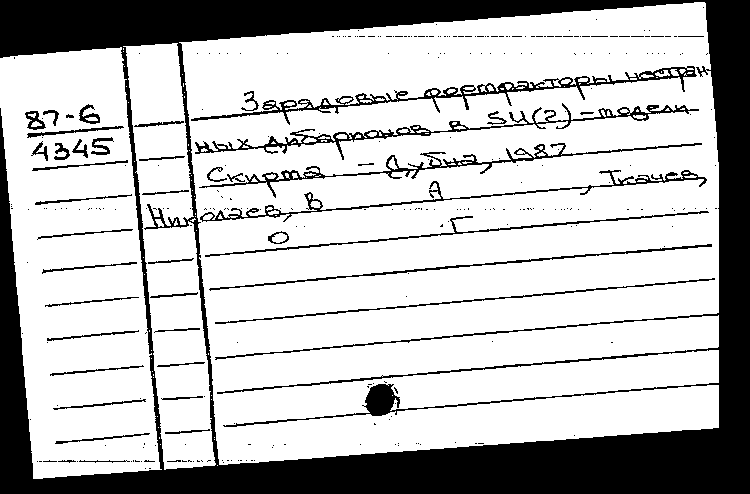 87-6
4345
Зарядовые формфакторы нестран-
ных дибарионов в SU(2)-модели
Скирма - Дубна, 1987
Николаев, В А , Ткачев,
О Г